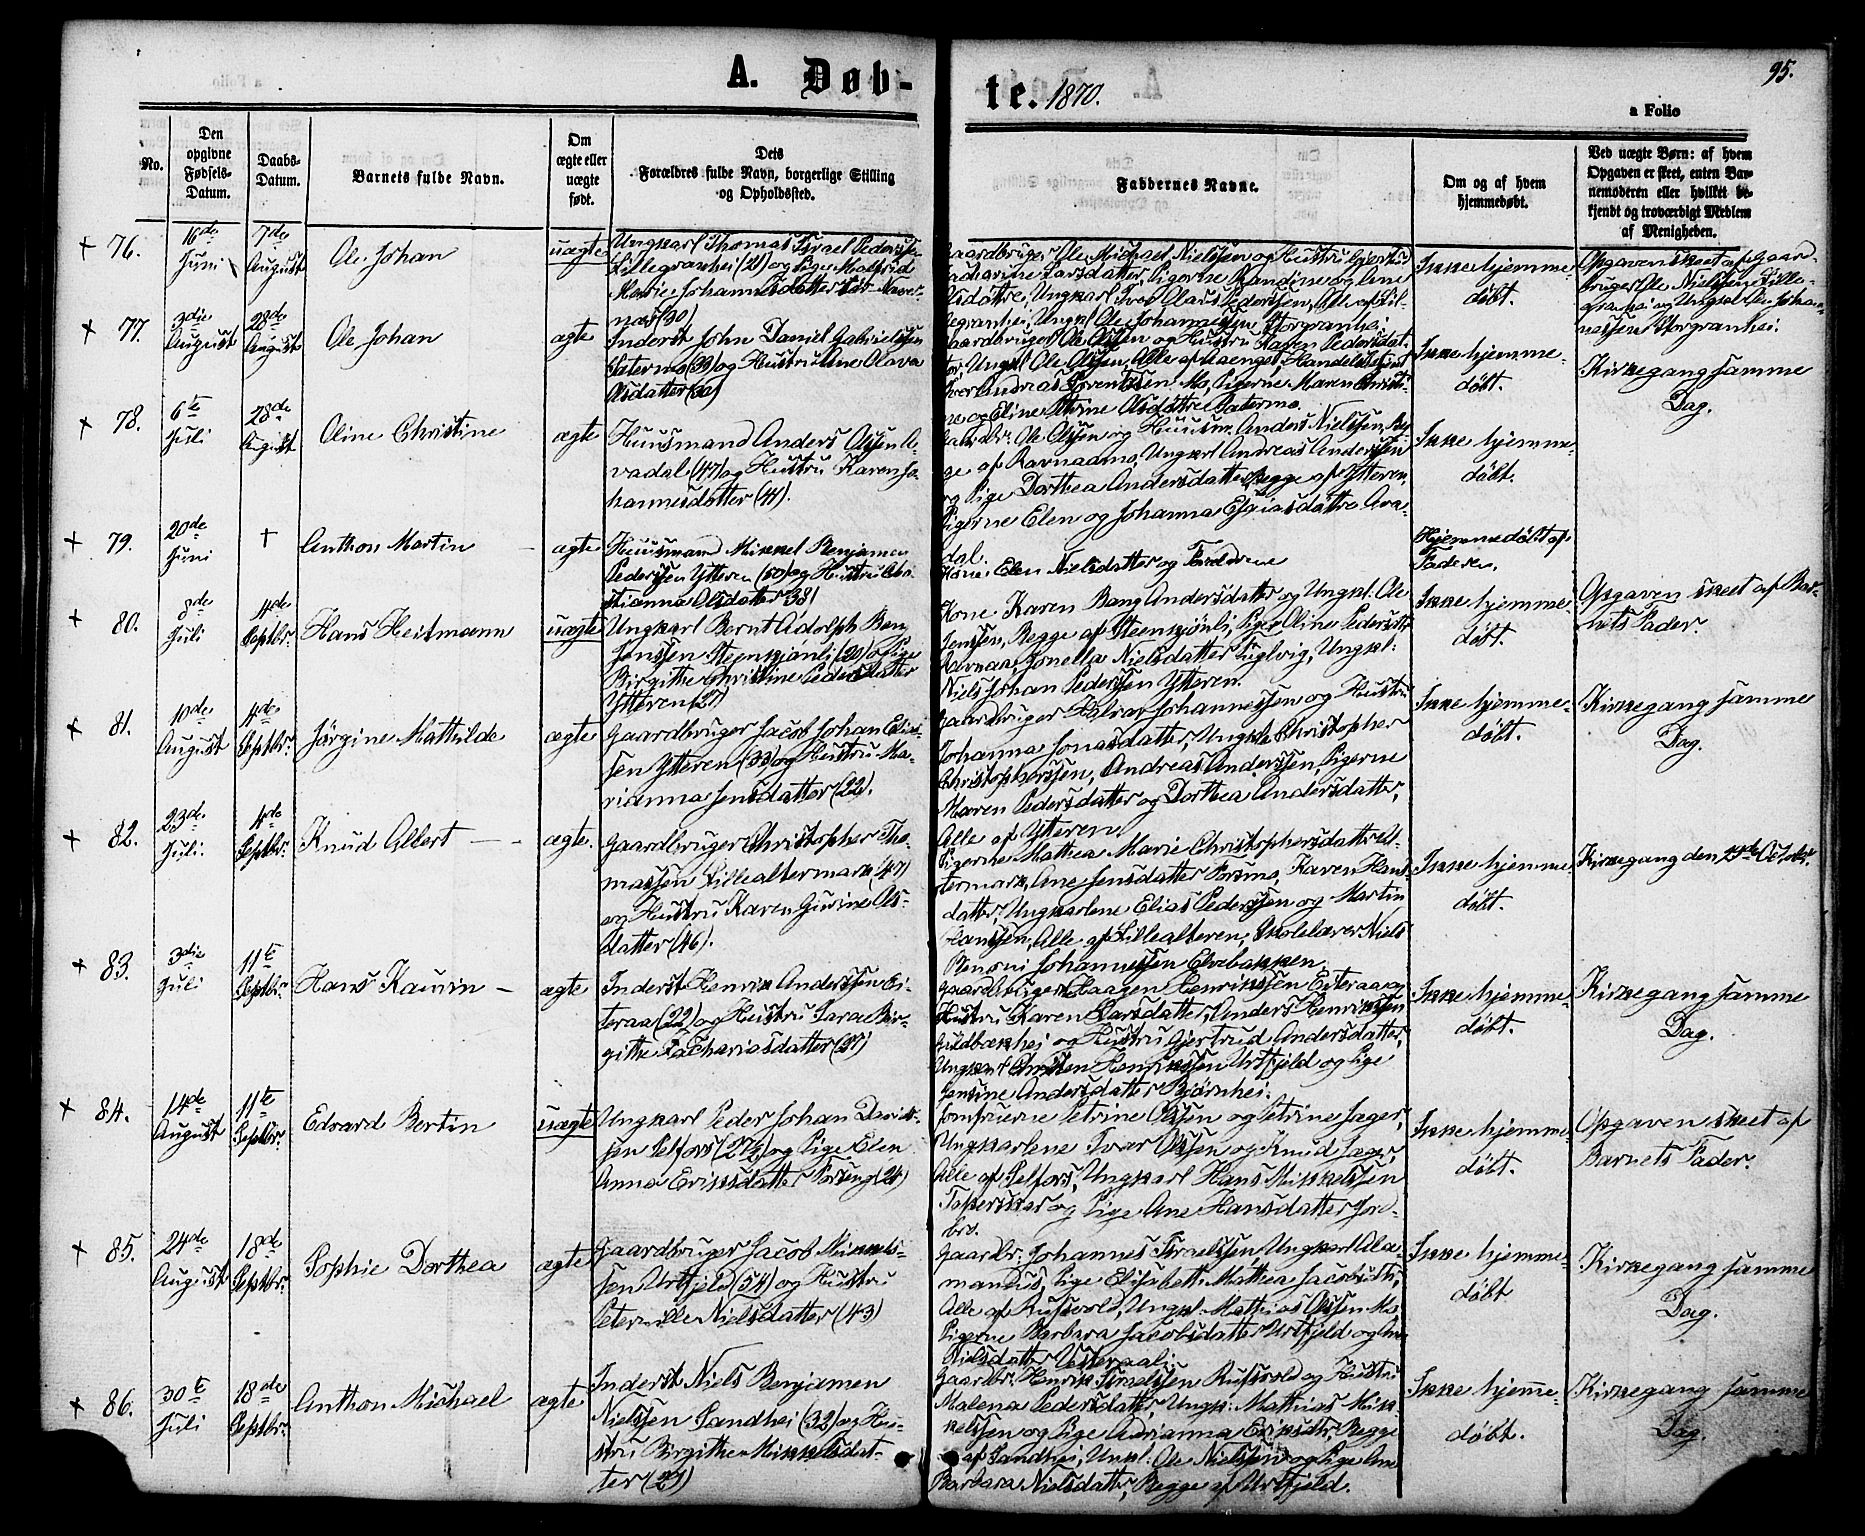 A. Døb-
te. 1870.
95.
a Folio
No.
Den opgivne Fødsels-Datum.
Daabs-Datum.
Barnets fulde Navn.
Om ægte eller uægte født.
Dets Forældres fulde Navn, borgerlige Stilling og Opholdssted.
Faddernes Navne.
Om og af hvem hjemmedøbt.
Ved uægte Børn: af hvem Opgaven er skeet, enten Barnemoderen eller hvilket bekjendt og troværdigt Medlem af Menigheden.
76.
16de Juni
7de August
Ole Johan
uægte
Ungkarl Thomas Israel Pedersen
Lillegranhei (21) og Pige Malfrid
Marie Johannesdatter
(30)
Gaardbruger Ole Michael Nielssen og Hustru
Larsdatter, Pigerne Randine og Ane
Olsdøttre, Ungkarl Ivar Olaus Pederssen, Alle af Lil-
legranhei, Ungkl Ole Johannessen Storgranhei
Ikke hjemme
døbt.
Opgaven skeet af Gaard-
bruger Ole Nielssen Lille-
granhei og Ungkl Ole Johan-
nessen Storgranhei.
77.
3die August
28de August
Ole Johan
ægte
Inderst John Daniel Gabrielssen
Sætermo (33) og Hustru Ane Olava
Olsdatter (30)
Gaardbruger Ole Olssen og Hustru Karen Pedersdat-
ter, Ungkl Ole Olssen, Alle af
Andreas Lorentssen Mo, Pigerne Maren Christi-
ne og Eline Petrine Olsdøttre Sætermo.
Ikke hjemme-
døbt.
Kirkegang samme
Dag.
78.
6te Juli
28de August
Oline Christine
ægte
Huusmand Anders Olssen A-
vadal (47) og Hustru Karen Jo-
hannesdatter (41).
Gaardbr. Ole Olssen og Huusm. Anders Nielssen, Beg-
ge af Ravnaamo, Ungkarl Andreas Anderssen
og Pige Dorthea Andersdatter Begge af Ytteren,
Pigerne Elen og Johanna Esaiasdøttre Ava-
dal.
Ikke hjemme-
døbt.
79.
20de Juni
+
Anthon Martin
ægte
Huusmand Mikkel Benjamin
Pederssen Ytteren (50) og Hustru
Olsdatter 38
Kone Elen Nielsdatter og Forældrene
Hjemmedøbt af
Faderen.
80.
8de Juli
4de Septbr.
Hans Heitmann
uægte
Ungkarl Bernt Adolph Ben
Jenssen Steenskjønli (20) og Pige
Birgitte Christine Pedersdatter
Ytteren 27
Kone Karen Bang Andersdatter og Ungkl. Ole
Jenssen, Begge af Steenskjønli, Pige Oline Pedersdtr
Ravnaa, Jonella Nielsdatter Fuglvig, Ungkl:
Niels Johan Pederssen Ytteren.
Ikke hjemme-
døbt.
Opgaven skeet af Bar-
nets Fader.
81.
10de August
4de Septbr.
Jörgine Mathilde
ægte
Gaardbruger Jacob Johan Elias-
sen Ytteren (33) og Hustru Ma-
rianna Jensdatter (22).
Gaardbruger Halvor Johannessen og Hustru
Johanna Jonasdatter, Ungkarle Christopher
Christopherssen, Andreas Anderssen, Pigerne
Maren Pedersdatter og Dorthea Andersdatter,
Alle af Ytteren.
Ikke hjemme-
døbt.
Kirkegang samme
Dag.
82.
23de Juli.
4de Septbr.
Knud Albert
ægte.
Gaardbruger Christopher Tho-
massen Lillealtermark (47)
og Hustru Karen Gurine Ols-
datter (46).
Pigerne Mathea Marie Christophersdatter Al-
termark, Ane Jensdatter Forsmo, Karen Hans-
datter, Ungkarlene Elias Pederssen og Martin
Hanssen, Alle af Lillealteren, Skolelærer Niels
Benoni Johannessen Elvebakken.
Ikke hjemme-
døbt.
Kirkegang den Octobr.
83.
3die Juli
11te Septbr.
Hans
ægte
Inderst Henrik Anderssen Ei-
teraa (22) og Hustru Sara Bir-
gitte Zachariasdatter (27)
Gaardbruger Haagen Henrikssen Eiteraa og
Hustru Karen Larsdatter, Anders Henrikssen
og Hustru Gjertrud Andersdatter,
Ungkarl Christen Henrikssen Urtfjeld og Pige
Jensine Andersdatter Bjørnhei.
Ikke hjemme-
døbt.
Kirkegang samme
Dag.
84.
14de August
11te Septbr.
Edvard Bertin
uægte
Ungkarl Peder Johan David-
sen Selfors (27½) og Pige Elen
Anna Eriksdatter (24)
Jomfruerne Petrine Olssen og Petrine Jæger,
Ungkarlene Ivar Olssen og Knud Jæger,
Alle af Selfors, Ungkarl Hans Mikkelssen
og Pige Ane Hansdatter Jord-
bro.
Ikke hjemme-
døbt.
Opgaven skeet af
Barnets Fader.
85.
24de August
18de Septbr.
Sophie Dorthea
ægte
Gaardbruger Jacob Mikkels-
sen Urtfjeld (54) og Hustru
Peternille Nielsdatter (43)
Gaardbr. Johannes Israelssen, Ungkarl Ala-
mandus, Pige Elisabeth Mathea Jacobsdtr,
Alle af Rufsvold, Ungkl: Mathias Olssen Mo
Pigerne Barbara Jacobsdatter Urtfjeld og Ane
Nielsdatter Vesteraali.
Ikke hjemme-
døbt
Kirkegang samme
Dag.
86.
30te Juli
18de Septbr.
Anthon Michael
ægte
Inderst Niels Benjamin
Nielssen Sandhei (32) og Hu-
stru Birgitte Mikkelsdat-
ter (27)
Gaardbr. Henrik Israelssen Rufsvold og Hustru
Malena Pedersdatter, Ungk: Mathias Mik-
kelssen og Pige Adrianna Eriksdtr, Begge
af Sandhei, Ungkl: Ole Nielssen og Pige Ane
Barbara Nielsdatter, Begge af Urtfjeld.
Ikke hjemme-
døbt.
Kirkegang samme
Dag.